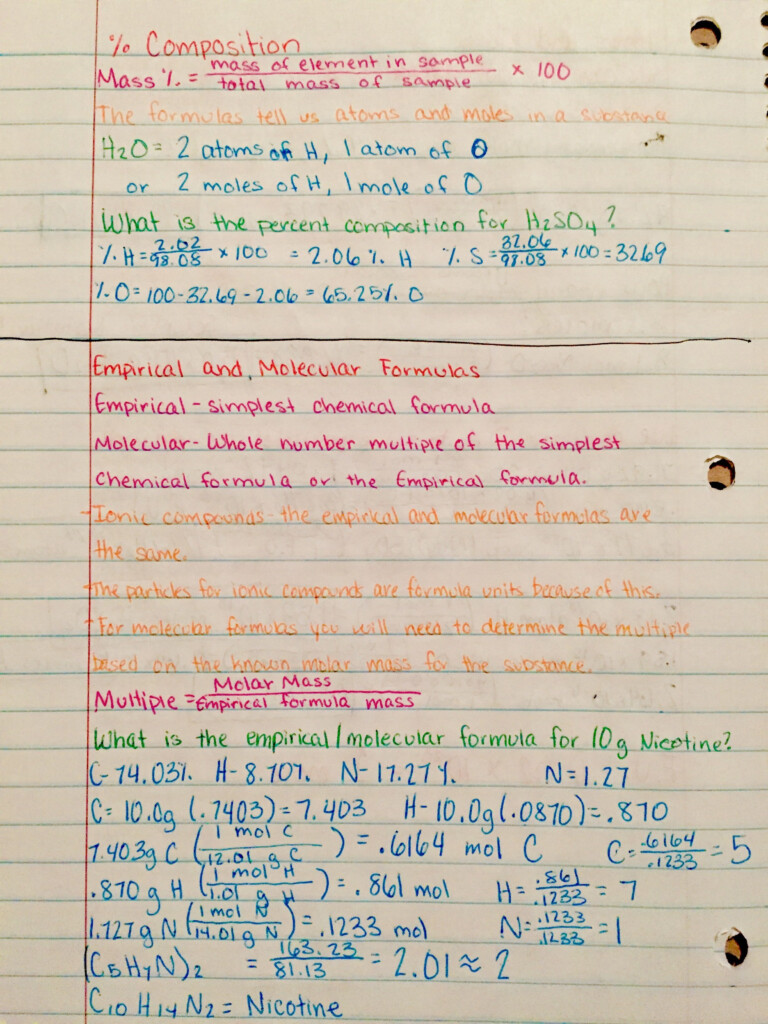 % Composition
Mass % = mass of element in sample / total mass of sample × 100
The formulas tell us atoms and moles in a substance
H2O = 2 atoms of H, 1 atom of O
or 2 moles of H, 1 mole of O
What is the percent composition for H2SO4?
% H = 2.02/98.08 × 100 = 2.06 % H % S = 32.06/98.08 × 100 = 32.69
% O = 100 - 32.69 - 2.06 = 65.25% O
Empirical and Molecular Formulas
Empirical - simplest chemical formula
Molecular - Whole number multiple of the simplest
Chemical formula or the Empirical formula.
- Ionic compounds - the empirical and molecular formulas are
the same.
- The particles for ionic compounds are formula units because of this.
- For molecular formulas you will need to determine the multiple
based on the known molar mass for the substance.
Multiple = Molar Mass / Empirical formula mass
What is the empirical/molecular formula for 10g Nicotine?
C - 74.03% H - 8.70% N - 17.27% N = 1.27
C = 10.0g (.7403) = 7.403 H - 10.0g (.0870) = .870
7.403g C (1 mol C / 12.01 g C) = .6164 mol C C = .6164/.1233 = 5
.870 g H (1 mol H / 1.01 g H) = .861 mol H = .861/.1233 = 7
1.727g N (1 mol N / 14.01 g N) = .1233 mol N = .1233/.1233 = 1
(C5H7N)2 = 163.23/81.13 = 2.01 ≈ 2
C10H14N2 = Nicotine